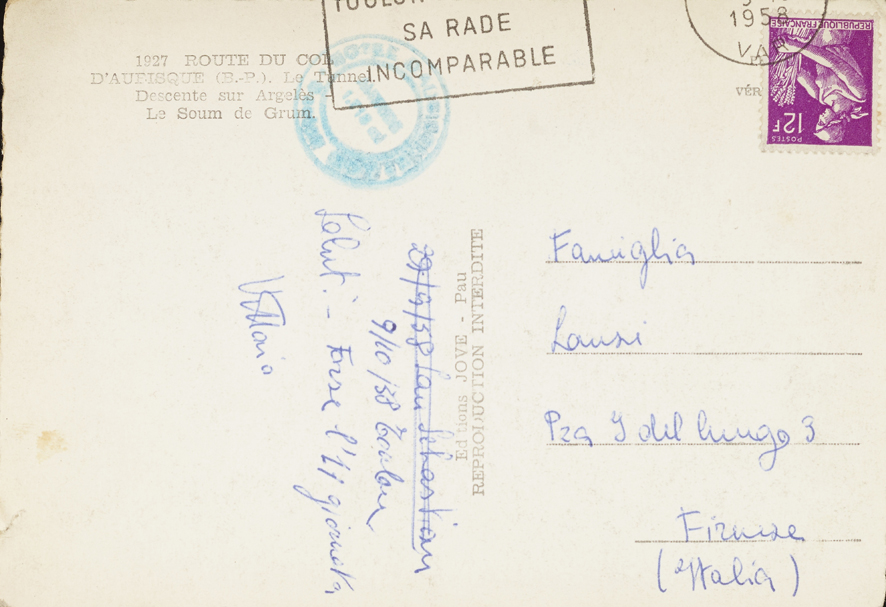 TOULON
SA RADE
INCOMPARABLE
1958
VAR
REPUBLIQUE FRANÇAISE
POSTES 12F
1927 ROUTE DU COL
D'AUBISQUE (B.-P.). Le Tunnel.
Descente sur Argelès -
Le Soum de Grum.
VÉR
Editions JOVE - Pau
REPRODUCTION INTERDITE
29/9/58 San Sebastian
9/10/58 Toulon
Saluti - Forse l'11 giornata
Vittorio
Famiglia
Pza I del lungo 3
Firenze
(Italia)